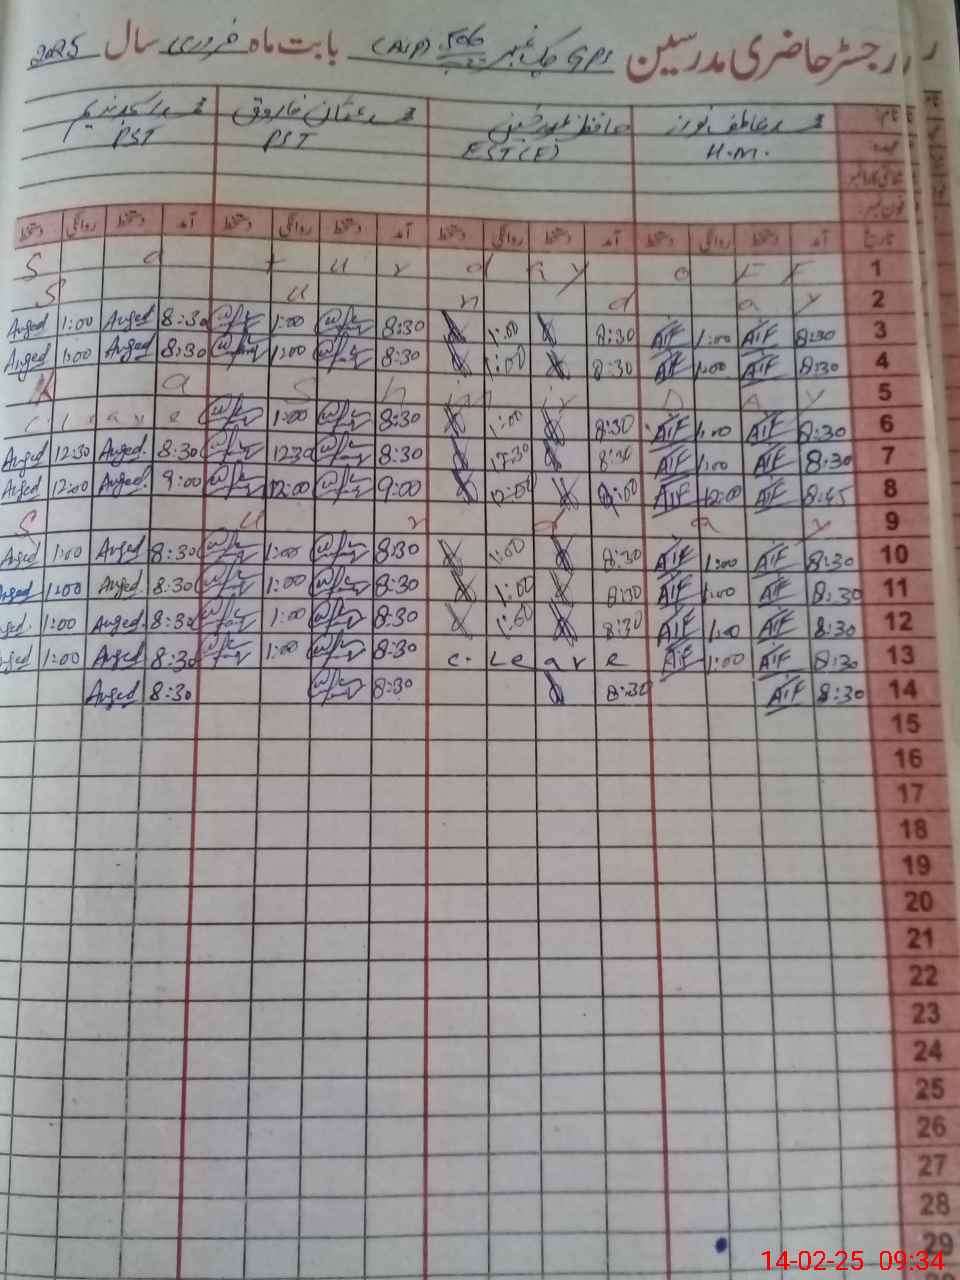 رجسٹر حاضری مدرسین GPS چک نمبر 506 (AIP) بابت ماہ فروری سال 2025
نام: محمد عاطف نواز حافظ حسین محمد عثمان فاروق محمد ندیم
عہدہ: H.M. EST(E) PST PST
شناختی کارڈ نمبر
فون نمبر
تاریخ آمد دستخط روانگی دستخط آمد دستخط روانگی دستخط آمد دستخط روانگی دستخط آمد دستخط روانگی دستخط
S a t u r d a y o F F 1
S u n d a y 2
Avged 1:00 Avged 8:30 1:00 8:30 1:00 8:30 AiF 1:00 AiF 8:30 3
Avged 1:00 Avged 8:30 1:00 8:30 1:00 8:30 AiF 1:00 AiF 8:30 4
K a S h m i r D a y 5
C. l e a v e 1:00 8:30 1:00 8:30 AiF 1:00 AiF 8:30 6
Avged 12:30 Avged. 8:30 1230 8:30 1230 8:30 AiF 1:00 AiF 8:30 7
Avged 12:00 Avged. 9:00 12:00 9:00 12:00 9:00 AiF 12:00 AiF 8:45 8
S u n d a y 9
Avged 1:00 Avged 8:30 1:00 8:30 1:00 8:30 AiF 1:00 AiF 8:30 10
Avged 1:00 Avged 8:30 1:00 8:30 1:00 8:30 AiF 1:00 AiF 8:30 11
1:00 Avged. 8:30 1:00 8:30 1:00 8:30 AiF 1:00 AiF 8:30 12
1:00 Avged 8:30 1:00 8:30 C. L e a v e AiF 1:00 AiF 8:30 13
Avged 8:30 8:30 8:30 AiF 8:30 14
15
16
17
18
19
20
21
22
23
24
25
26
27
28
29
14-02-25 09:34